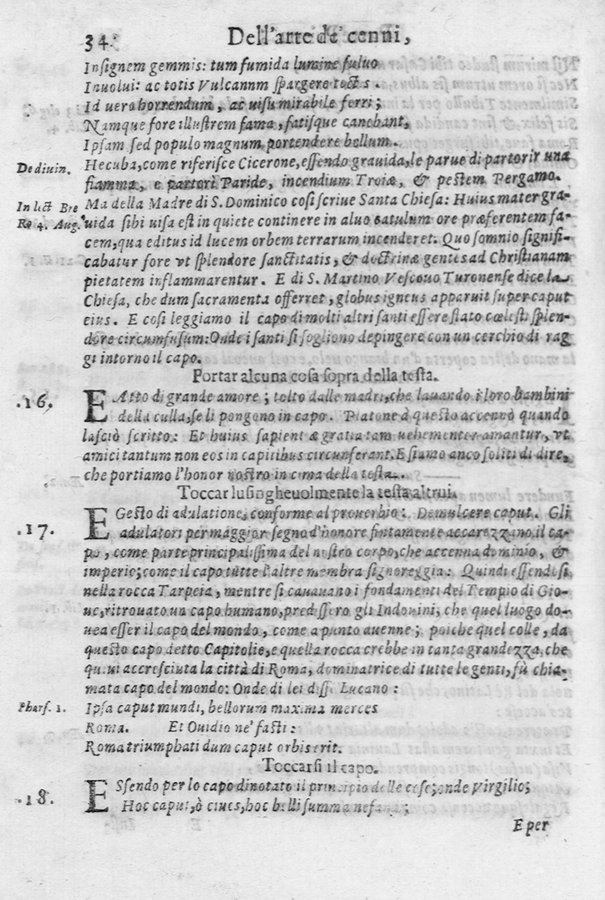 34. Dell'arte de' cenni,
Insignem gemmis: tum fumida lumine fuluo
Inuolui: ac totis Vulcanum spargere tectis.
Id uero horrendum, ac uisu mirabile ferri;
Namque fore illustrem fama, fatisque canebant,
Ipsam sed populo magnum portendere bellum.
De diuin. Hecuba, come riferisce Cicerone, essendo grauida, le parue di partorir una
fiamma, e partorì Paride, incendium Troiæ, & pestem Pergamo.
In lect Bre Ma della Madre di S. Dominico cosi scriue Santa Chiesa: Huius mater gra-
Ro 4. Aug. uida sibi uisa est in quiete continere in aluo catulum ore præferentem fa-
cem, qua editus id lucem orbem terrarum incenderet. Quo somnio signifi-
cabatur fore vt splendore sanctitatis, & doctrinæ gentes ad Christianam
pietatem inflammarentur. E di S. Martino Vescouo Turonense dice la
Chiesa, che dum sacramenta offerret, globus igneus apparuit super caput
eius. E cosi leggiamo il capo di molti altri santi essere stato cœlesti splen-
dore circumfusum: Onde i santi si sogliono depingere con un cerchio di rag
gi intorno il capo.
Portar alcuna cosa sopra della testa.
.16. E Atto di grande amore; tolto dalle madri, che lauando i loro bambini
della culla, se li pongono in capo. Platone à questo accennò quando
lasciò scritto: Et huius sapientiæ gratia tam uehementer amantur, vt
amici tantum non eos in capitibus circunferant. E siamo anco soliti di dire,
che portiamo l'honor nostro in cima della testa.
Toccar lusingheuolmente la testa altrui.
.17. E Gesto di adulatione, conforme al prouerbio: Demulcere caput. Gli
adulatori per maggior segno d'honore fintamente accarezzano il ca-
po, come parte principalissima del nostro corpo, che accenna dominio, &
imperio; come il capo tutte l'altre membra signoreggia: Quindi essendosi
nella rocca Tarpeia, mentre si cauauano i fondamenti del Tempio di Gio-
ue, ritrouato un capo humano, predissero gli Indouini, che quel luogo do-
uea esser il capo del mondo, come a punto auenne; poiche quel colle, da
questo capo detto Capitolio, e quella rocca crebbe in tanta grandezza, che
quiui accresciuta la città di Roma, dominatrice di tutte le genti, fù chia-
mata capo del mondo: Onde di lei disse Lucano:
Pharſ. 1. Ipsa caput mundi, bellorum maxima merces
Roma. Et Ouidio ne' fasti:
Roma triumphati dum caput orbis erit.
Toccarsi il capo.
.18. E Ssendo per lo capo dinotato il principio delle cose; onde Virgilio;
Hoc caput, ò ciues, hoc belli summa nefandi;
E per